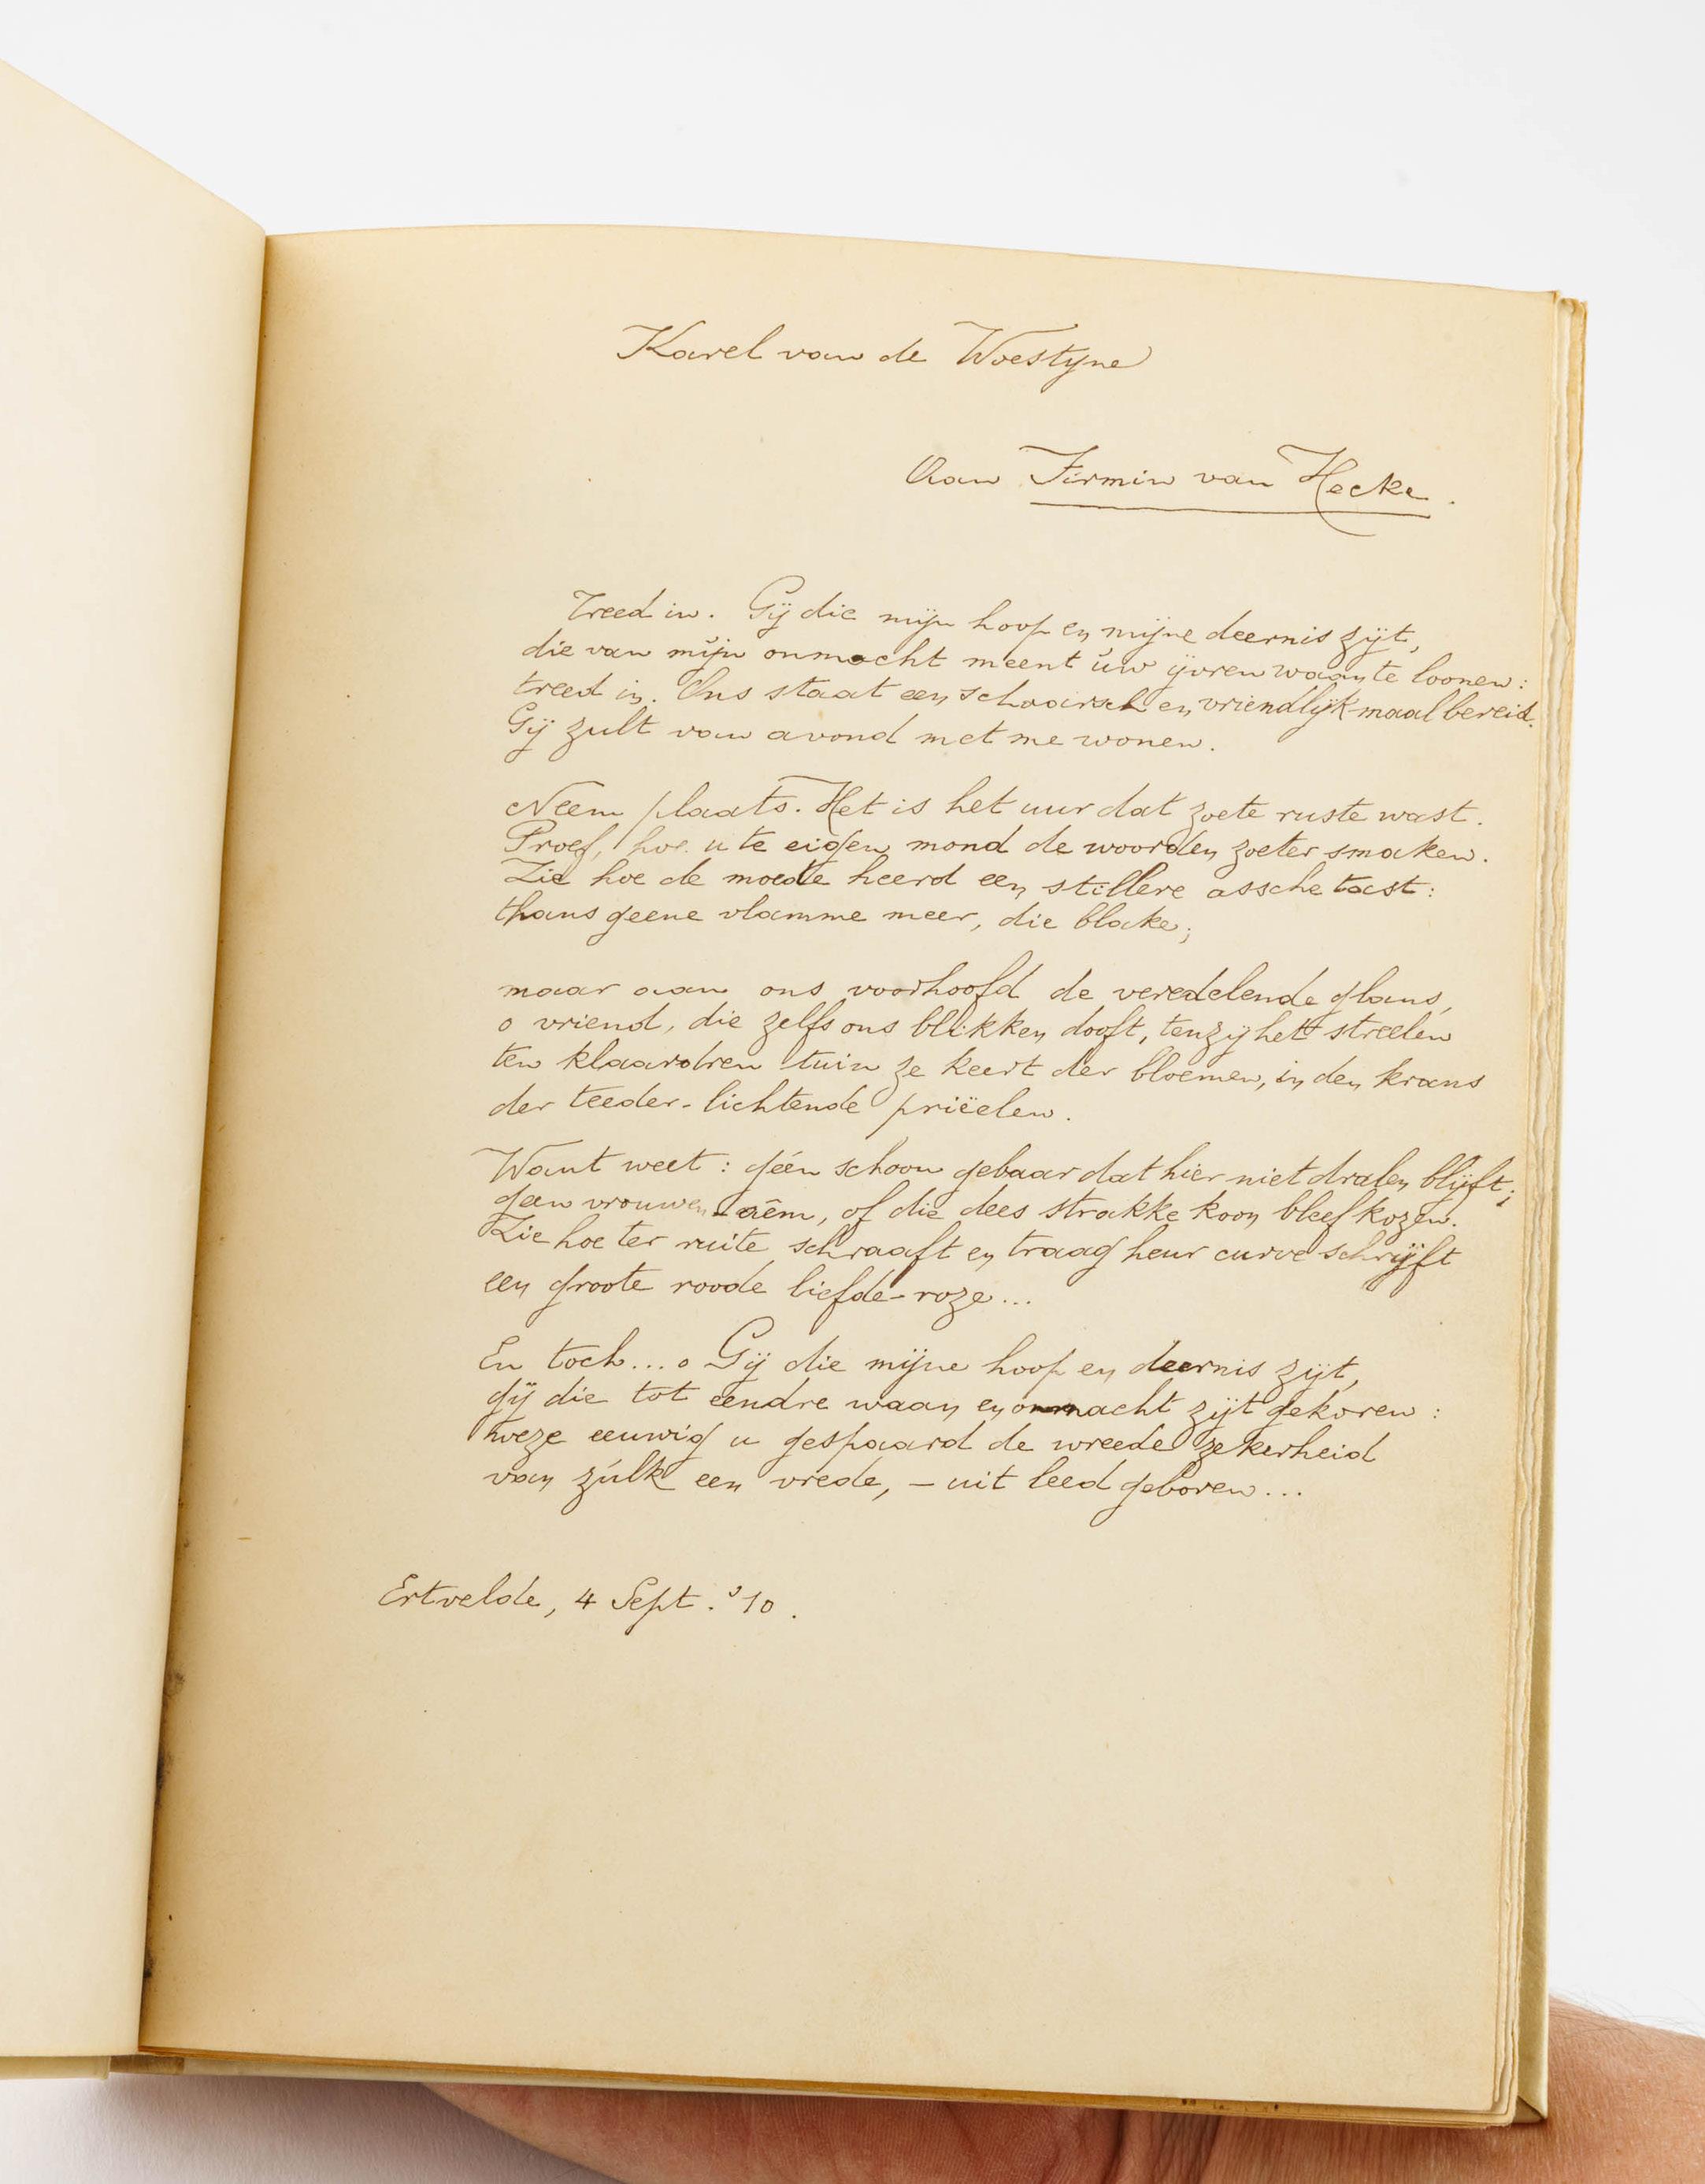 Karel van de Woestyne
Aan Firmin van Hecke.
Treed in. Gij die mijn hoop en mijne deernis zijt,
die van mijn onmacht meent uw ijvren waan te loonen:
treed in. Ons staat een schaarsch en vriendlijk maal bereid.
Gij zult van avond met me wonen.
Neem plaats. Het is het uur dat zoete ruste wast.
Proef, hoe u te eigen mond de woorden zoeter smaken.
Zie hoe de moede heerd een stillere assche tast:
thans geene vlamme meer, die blake;
maar aan ons voorhoofd de veredelende glans,
o vriend, die zelfs ons blikken dooft, tenzij het streelen
ten klaardren tuin ze keert der bloemen, in den krans
der teeder-lichtende priëelen.
Want weet: géén schoon gebaar dat hier niet dralen blijft;
geen vrouwen-aêm, of die dees strakke koon bleef kozen.
Zie hoe ter ruite schraaft en traag heur curve schrijft
een groote roode liefde-roze...
En toch... o Gij die mijne hoop en deernis zijt,
gij die tot eendre waan en onmacht zijt gekoren:
weze eeuwig u gespaard de wreede zekerheid
van zúlk een vrede, – uit leed geboren...
Ertvelde, 4 Sept. '10.